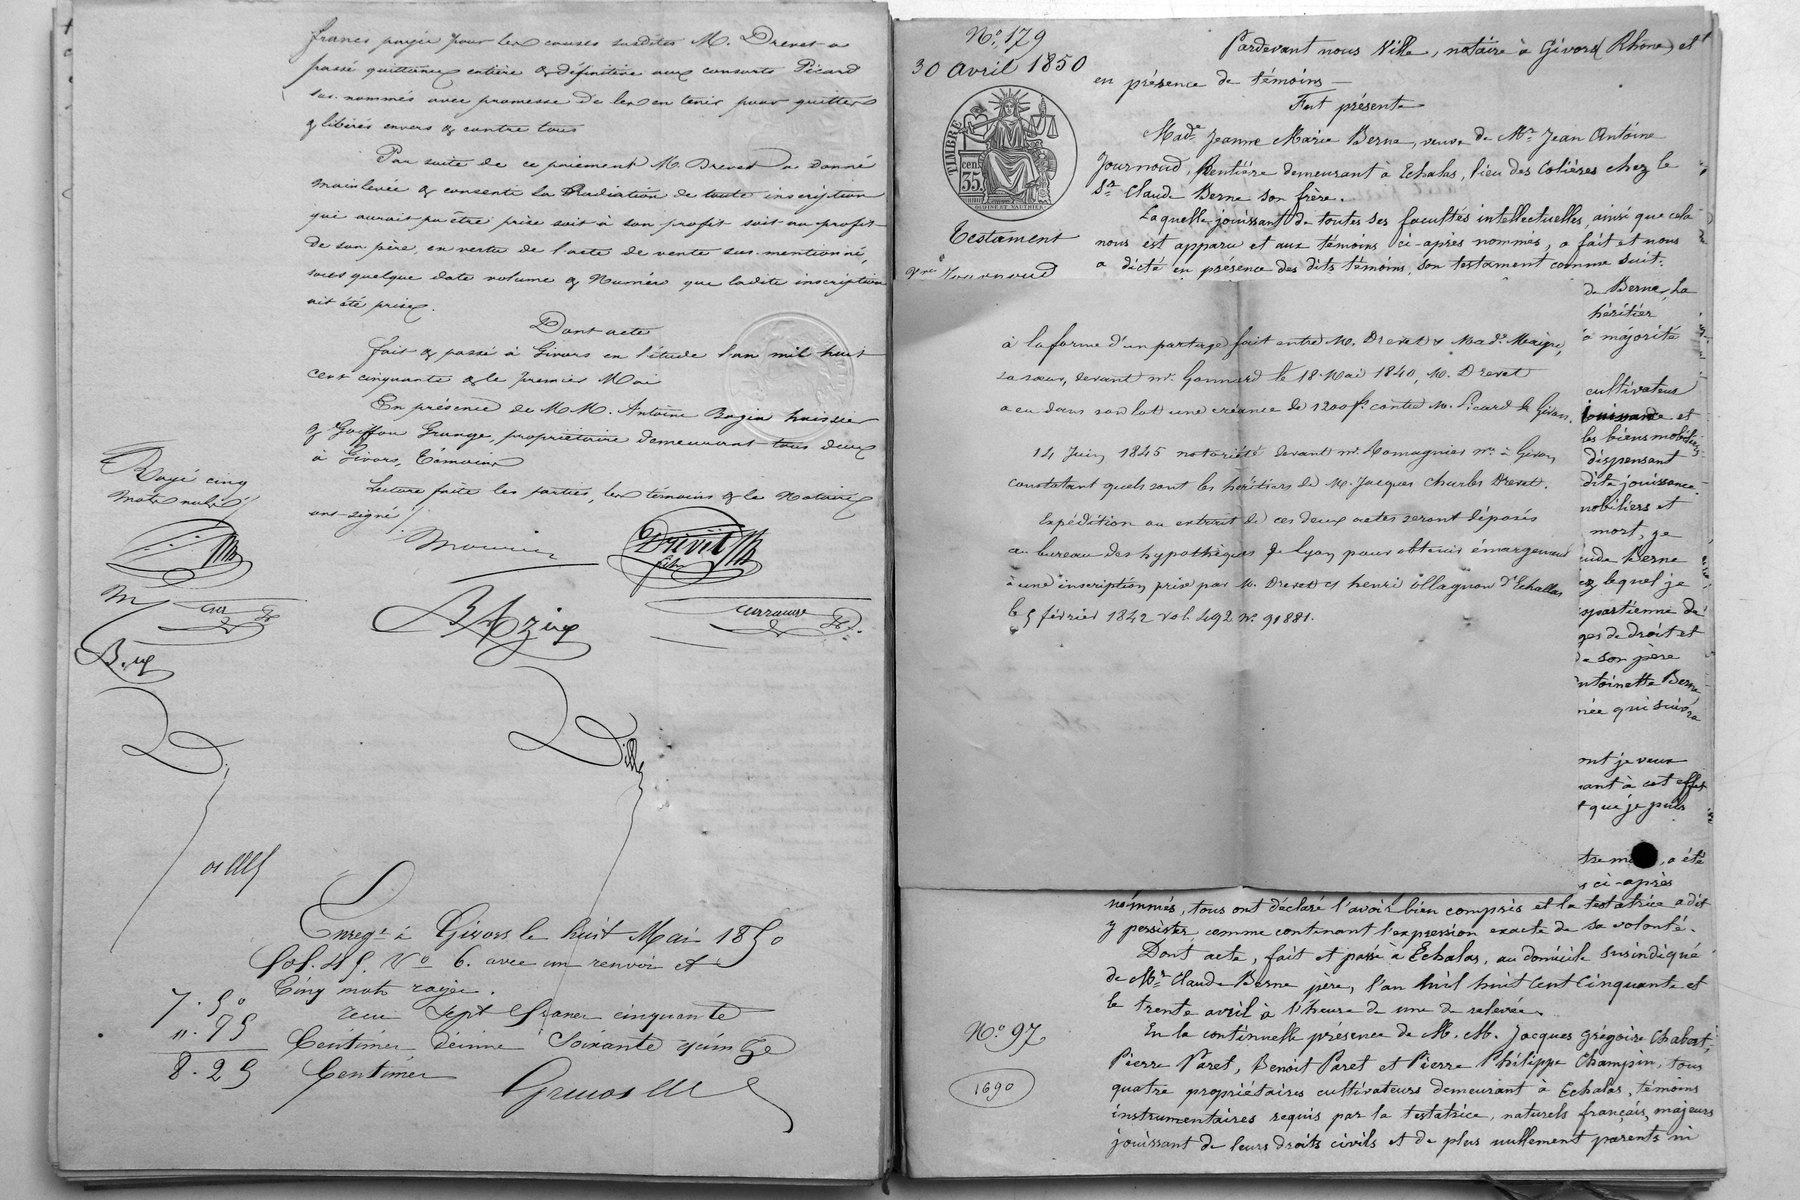 francs payée pour les causes susdites M. Drevet a
passé quittance entière & définitive aux consorts Picard
sus-nommés avec promesse de les en tenir pour quittes
& libérés envers & contre tous
Par suite de ce paiement M. Drevet a donné
mainlevée & consenti la Radiation de toute inscription
qui aurait pu être prise soit à son profit soit au profit
de son père, en vertu de l'acte de vente sus-mentionné,
sous quelque date volume & Numéro que ladite inscription
ait été prise.
Dont acte
fait & passé à Givors en l'étude l'an mil huit
cent cinquante & le premier Mai
En présence de M.M. Antoine Bazin huissier
& Goiffon Grange, propriétaire demeurant tous deux
à Givors, Témoins
Lecture faite les parties, les témoins & le Notaire
ont signé
Rayé cinq
mots nuls
Drevet
fils
Bazin
Ville
Enregé à Givors le huit Mai 1850
fol. 45. Vo 6. avec un renvoi et
Cinq mots rayés.
7. 50
reçu Sept francs cinquante
". 75
Centimes décime Soixante quinze
8. 25
Centimes
No. 179
30 Avril 1850
TIMBRE
cen.
35.
Testament
Journoud
No. 97
1690
Pardevant nous Ville, notaire à Givors (Rhône) et
en présence de témoins
Fut présente
Made Jeanne Marie Berne, veuve de Mr Jean Antoine
Journoud, Rentière demeurant à Echalas, lieu des Cotières chez le
Sr Claude Berne son frère.
Laquelle jouissant de toutes ses facultés intellectuelles, ainsi que cela
nous est apparu et aux témoins ci-après nommés, a fait et nous
a dicté en présence des dits témoins, son testament comme suit:
à la forme d'un partage fait entre M. Drevet & Made Maigre,
sa sœur, devant Mr. Gonnard le 18 Mai 1840, M. Drevet
a eu dans son lot une créance de 1200 fs contre M. Picard de Givors.
14 Juin 1845 notoriété devant Mr. Romagnier Nre à Givors
constatant quels sont les héritiers de M. Jacques Charles Drevet.
Expédition ou extrait de ces deux actes seront déposés
au bureau des hypothèques de Lyon pour obtenir émargement
à une inscription prise par M. Drevet & henri Ollagnon d'Echallas
le 5 février 1842 vol. 492 No. 91881.
de Berne, la
héritier
à majorité
cultivateur
jouissance et
les biens mobiliers
dispensant
dite jouissance.
mobiliers et
mort, je
Berne
lequel je
appartienne de
de droit et
de son père
Antoinette Berne
née qui suivra
ont je veux
ant à cet effet
que je puis
, a été
ci-après
nommés, tous ont déclaré l'avoir bien compris et la testatrice a dit
y persister comme contenant l'expression exacte de sa volonté.
Dont acte, fait et passé à Echalas, au domicile susindiqué
de Mr Claude Berne père, l'an Mil huit Cent Cinquante et
le trente avril à l'heure de une de relevée.
En la continuelle présence de M. M. Jacques Grégoire Chabert,
Pierre Paret, Benoit Paret et Pierre Philippe Champin, tous
quatre propriétaires cultivateurs demeurant à Echalas, témoins
instrumentaires requis par la testatrice, naturels français, majeurs
jouissant de leurs droits civils et de plus nullement parents ni